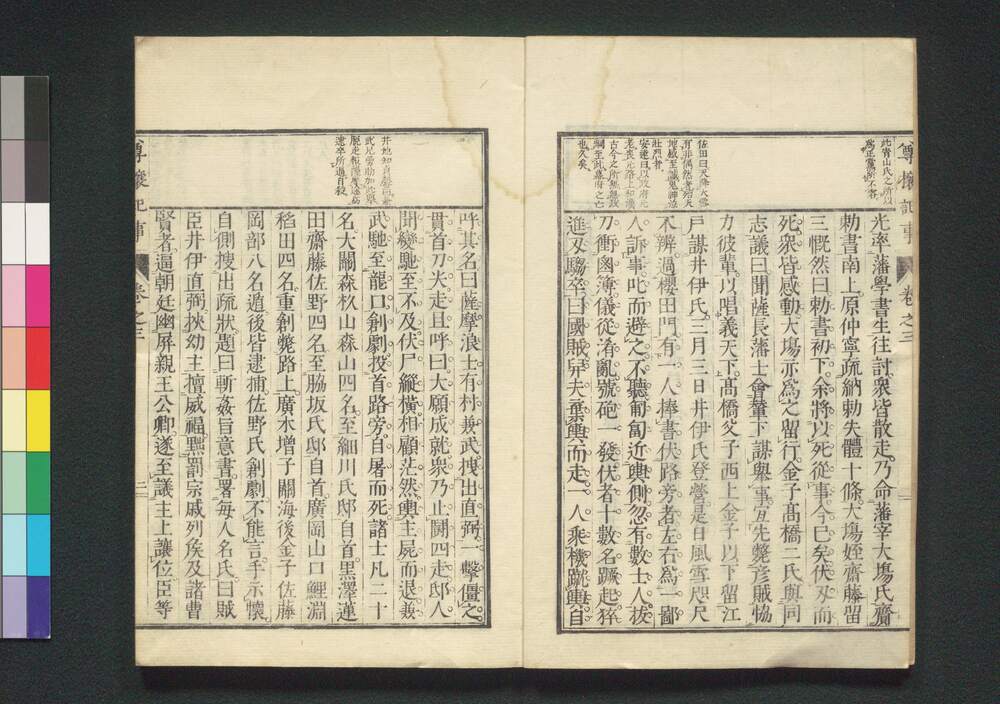 尊攘記事 卷之三
此膏山氏之所以
為正黨所不容
佐田曰天降大雪
有非偶然者焉天
地感至誠鬼神泣
壯烈者
安達曰以政府元
老喪元路上和漢
古今之所無無政
綱至此幕府之亡
也久矣
光率藩學書生往討衆皆散走乃命藩宰大塲氏齎
勅書南上原仲寧疏納勅失體十條大塲姪齋藤留
三慨然曰勅書初下余將以死從事今已矣伏刄而
死衆皆感動大塲亦爲之留行金子高橋二氏與同
志議曰聞薩長藩士會輦下謀舉事宜先斃彥賊恊
力彼輩以唱義天下高橋父子西上金子以下留江
戶謀井伊氏三月三日井伊氏登營是日風雪咫尺
不辨過櫻田門有一人捧書伏路旁者左右爲一鄙
人訴事叱而避之不聽匍匐近輿側忽有數士人拔
刀衝鹵簿儀從淆亂號砲一發伏者十數名蹶起猝
進刄騶卒曰國賊舁夫棄輿而走一人乘機跳輿自
呼其名曰薩摩浪士有村兼武拽出直弼一擊僵之
貫首刀尖走且呼曰大願成就衆乃止鬪四走邸人
聞變馳至不及伏尸縱橫相顧茫然輿主屍而退兼
武馳至龍口創劇投首路旁自屠而死諸士凡二十
名大關森杦山森山四名至細川氏邸自首黑澤蓮
田齋藤佐野四名至脇坂氏邸自首廣岡山口鯉淵
稻田四名重創斃路上廣木增子關海後金子佐藤
岡部八名遁後皆逮捕佐野氏創劇不能言手示懷
自側搜出疏狀題曰斬姦旨意書署每人名氏曰賊
臣井伊直弼挾幼主擅威福黜罰宗戚列侯及諸曹
賢者逼朝廷幽屏親王公卿遂至議主上讓位臣等
尊攘記事 卷之三
三